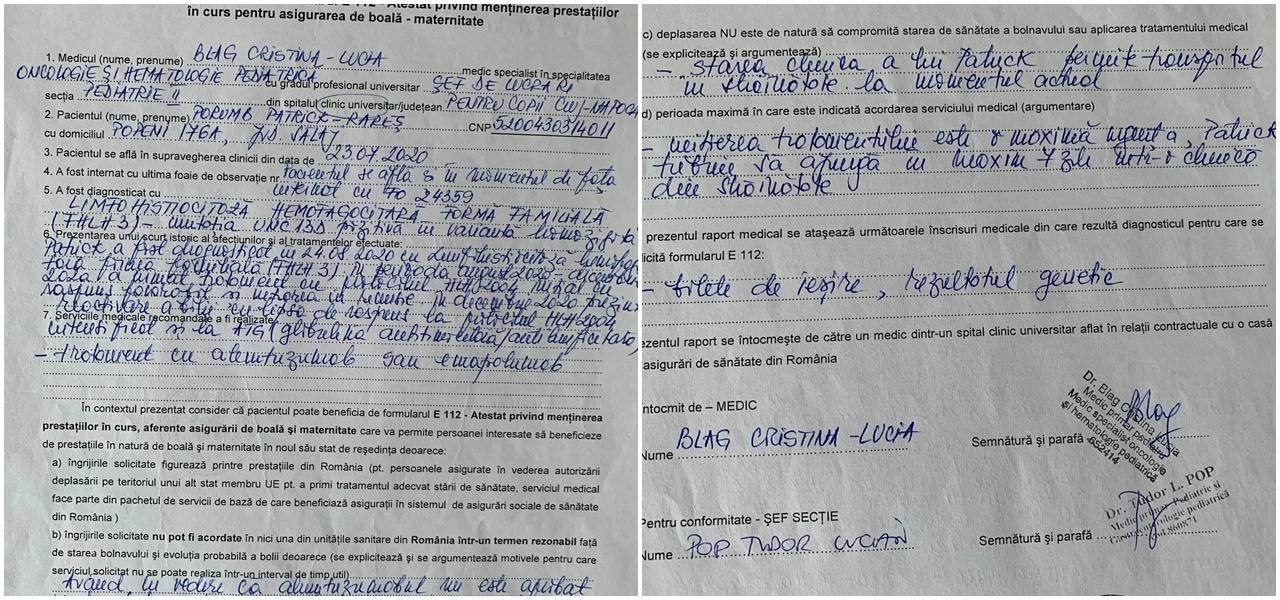 E 112 - Atestat privind menținerea prestațiilor
în curs pentru asigurarea de boală - maternitate
1. Medicul (nume, prenume) BLAG CRISTINA-LUCIA medic specialist în specialitatea
ONCOLOGIE ȘI HEMATOLOGIE PEDIATRICĂ cu gradul profesional universitar ȘEF DE LUCRĂRI
secția PEDIATRIE II din spitalul clinic universitar/județean PENTRU COPII CLUJ-NAPOCA
2. Pacientul (nume, prenume) POROMB PATRICK-RAREȘ CNP 5200430314011
cu domiciliul POPENI 176A, JUD. SALAJ
3. Pacientul se află în supravegherea clinicii din data de 23.07.2020
4. A fost internat cu ultima foaie de observație nr. pacientul se află și în momentul de față
5. A fost diagnosticat cu internat cu FO 24359
LIMFOHISTIOCITOZĂ HEMOFAGOCITARĂ FORMĂ FAMILIALĂ
(FHLH 3) - mutația UNC13D pozitivă în variantă homozigotă
6. Prezentarea unui scurt istoric al afecțiunilor și al tratamentelor efectuate:
Patrick a fost diagnosticat în 24.08.2020 cu
(FHLH 3) în perioada august 2020 - decembrie
tratament cu protocolul HLH2004 inițial cu
răspuns favorabil și intrarea în remisie în decembrie 2020
reactivare a bolii cu lipsă de răspuns la protocolul HLH2004
7. Serviciile medicale recomandate a fi realizate
intensificat și la ATG (globulina antitimocitara
- tratament cu alemtuzumab sau emapalumab
În contextul prezentat consider că pacientul poate beneficia de formularul E 112 - Atestat privind menținerea
prestațiilor în curs, aferente asigurării de boală și maternitate care va permite persoanei interesate să beneficieze
de prestațiile în natură de boală și maternitate în noul său stat de reședința deoarece:
a) îngrijirile solicitate figurează printre prestațiile din România (pt. persoanele asigurate în vederea autorizării
deplasării pe teritoriul unui alt stat membru UE pt. a primi tratamentul adecvat stării de sănătate, serviciul medical
face parte din pachetul de servicii de bază de care beneficiază asigurații în sistemul de asigurări sociale de sănătate
din România )
b) îngrijirile solicitate nu pot fi acordate în nici una din unitățile sanitare din România într-un termen rezonabil față
de starea bolnavului și evoluția probabilă a bolii deoarece (se explicitează și se argumentează motivele pentru care
serviciul solicitat nu se poate realiza într-un interval de timp util)
Având în vedere ca alemtuzumabul nu este aprobat
c) deplasarea NU este de natură să compromită starea de sănătate a bolnavului sau aplicarea tratamentului medical
(se explicitează și argumentează)
- starea clinica a lui Patrick permite transportul
în străinătate la momentul actual
d) perioada maximă în care este indicată acordarea serviciului medical (argumentare)
- inițierea tratamentului este o maximă urgență, Patrick
trebuie să ajungă în maxim 7 zile într-o clinica
din străinătate
prezentul raport medical se atașează următoarele înscrisuri medicale din care rezultă diagnosticul pentru care se
licită formularul E 112:
- bilete de ieșire, rezultatul genetic
ezentul raport se întocmește de către un medic dintr-un spital clinic universitar aflat în relații contractuale cu o casă
asigurări de sănătate din România
ntocmit de – MEDIC
Nume BLAG CRISTINA-LUCIA Semnătură și parafă
Dr. Blag Cristina Lucia
Medic primar pediatrie
Medic specialist oncologie
și hematologie pediatrică
652414
Pentru conformitate - ȘEF SECȚIE
Nume POP TUDOR LUCIAN Semnătură și parafă
Dr. Tudor L. POP
Medic primar Pediatrie și